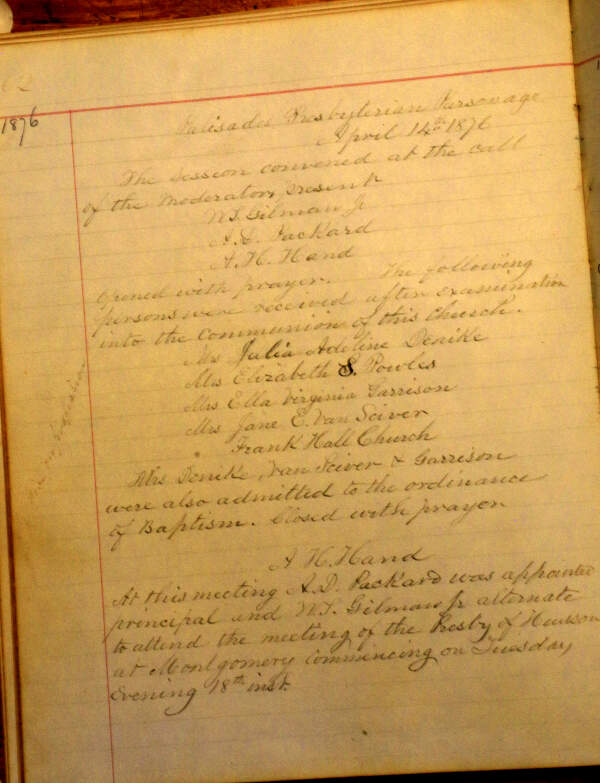 1876
Palisades Presbyterian Parsonage
April 14th 1876
The Session convened at the call
of the Moderator, present
W.S. Gilman Jr
A.D. Packard
A.H. Hand
Opened with prayer. The following
persons were received after examination
into the communion of this Church.
Mrs Julia Adeline Denike
Mrs Elizabeth S. Powles
Mrs Ella Virginia Garrison
Mrs Jane E. Van Sciver
Frank Hall Church
Mrs Denike, Van Sciver & Garrison
were also admitted to the ordinance
of Baptism. Closed with prayer
A H. Hand
At this meeting A.D. Packard was appointed
principal and W.S. Gilman Jr alternate
to attend the meeting of the Presby of Hudson
at Montgomery commencing on Tuesday
Evening 18th inst.